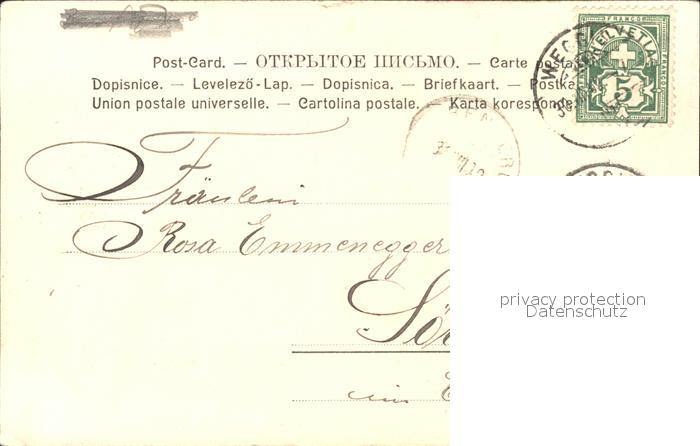 Post-Card. — ОТКРЫТОЕ ПИСЬМО. — Carte posta
Dopisnice. — Levelező-Lap. — Dopisnica. — Briefkaart. — Postka
Union postale universelle. — Cartolina postale. — Karta korespond
FRANCO
HELVETIA
5
WEGG
Fräulein
Rosa Emmenegger
privacy protection
Datenschutz
Sö
im